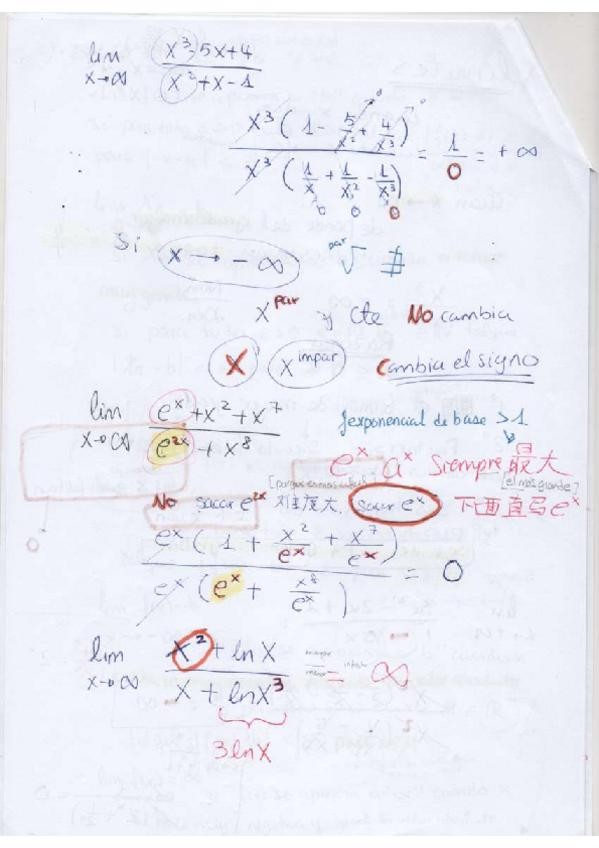 lim x→∞ x³-5x+4 / x²+x-1
x³(1 - 5/x² + 4/x³) / x³(1/x + 1/x² - 1/x³) = 1/0 = +∞
0 0
0 0 0
Si x → -∞ par √ ∄
x par y cte No cambia
x x impar Cambia el signo
lim x→∞ eˣ+x²+x⁷ / e²ˣ+x⁸
exponencial de base >1
eˣ aˣ Siempre 最大
[el mas grande]
No sacar e²ˣ 难度大, sacar eˣ 下面直写 eˣ
eˣ 1 + x²/eˣ + x⁷/eˣ / eˣ(eˣ + x⁸/eˣ) = 0
0
lim x→∞ x² + ln x / x + ln x³ = ∞
3 ln x